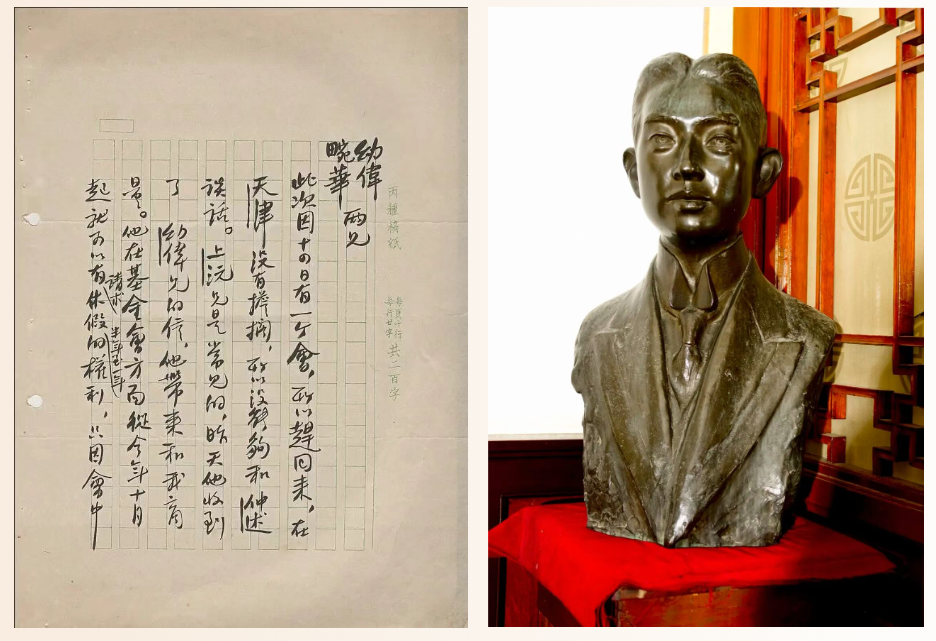 丙種稿紙
每頁十行
每行廿字
共二百字
幼偉
畹華 兩兄
此次因十四日有一个會，所以趕回來，在
天津沒有擔擱，所以沒能夠和仲述
談話。上沅兄是常見的，昨天他收到
了幼偉兄的信，他帶來和我商
量。他在基金會方面從今年十月
起就可以有請求休假半年至一年的權利，只因會中